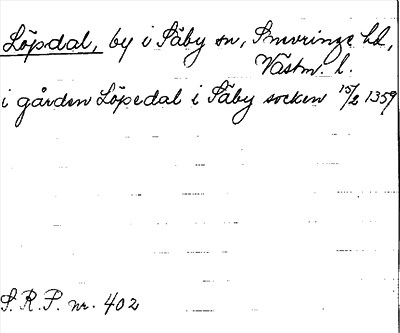 Löpdal, by i Säby sn, Snevringe hd,
Västm. l.
i gården Löpedal i Säby socken 15/2 1359
S.R.P. nr. 402